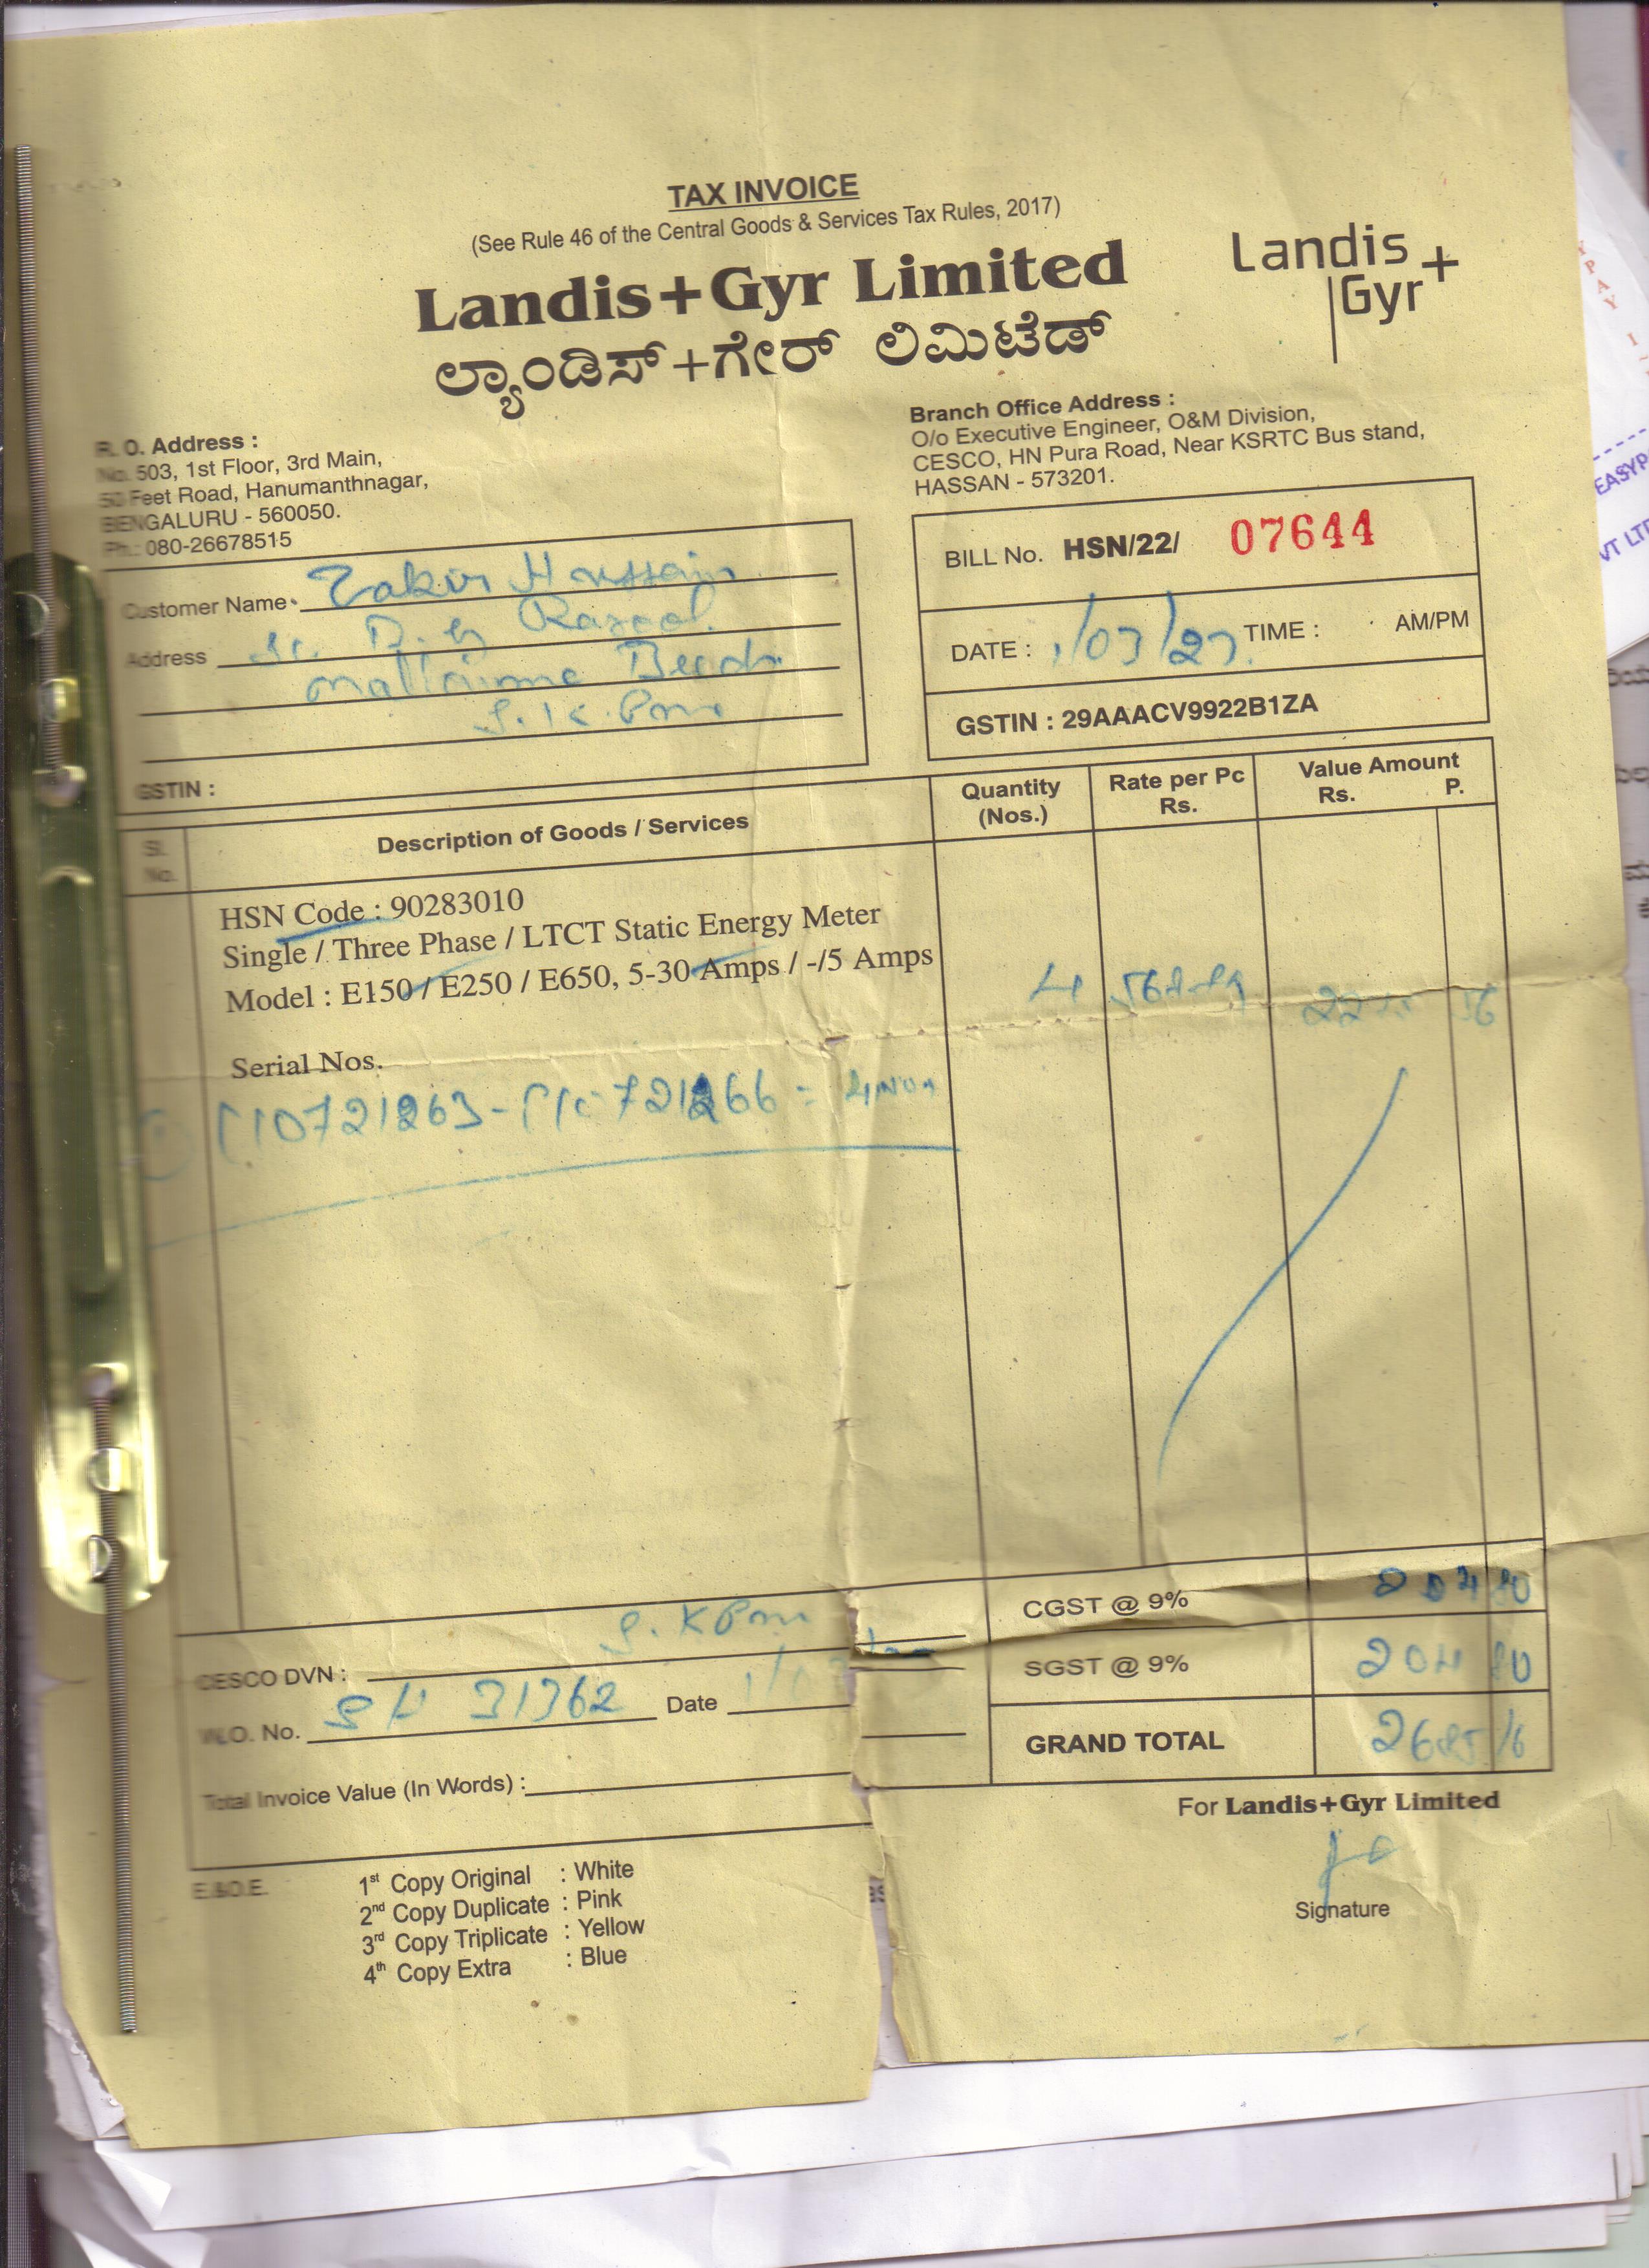 TAX INVOICE
(See Rule 46 of the Central Goods & Services Tax Rules, 2017)
Landis+Gyr Limited
ಲ್ಯಾಂಡಿಸ್+ಗೇರ್ ಲಿಮಿಟೆಡ್
Landis
Gyr+
R. O. Address :
No. 503, 1st Floor, 3rd Main,
50 Feet Road, Hanumanthnagar,
BENGALURU - 560050.
Ph.: 080-26678515
Branch Office Address :
O/o Executive Engineer, O&M Division,
CESCO, HN Pura Road, Near KSRTC Bus stand,
HASSAN - 573201.
BILL No. HSN/22/ 07644
DATE : 1/03/23 TIME : AM/PM
GSTIN : 29AAACV9922B1ZA
Customer Name Zakir Hussain
Address
S.K. Pura
GSTIN :
Sl. No.
Description of Goods / Services
Quantity (Nos.)
Rate per Pc Rs.
Value Amount Rs. P.
HSN Code : 90283010
Single / Three Phase / LTCT Static Energy Meter
Model : E150 / E250 / E650, 5-30 Amps / -/5 Amps
4 56
Serial Nos.
CESCO DVN : S. K Pura
W.O. No. 31362 Date
Total Invoice Value (In Words) :
CGST @ 9% 204 80
SGST @ 9% 204 80
GRAND TOTAL 2685 16
For Landis+Gyr Limited
Signature
E.&O.E.
1st Copy Original : White
2nd Copy Duplicate : Pink
3rd Copy Triplicate : Yellow
4th Copy Extra : Blue
EASYP
VT LTD